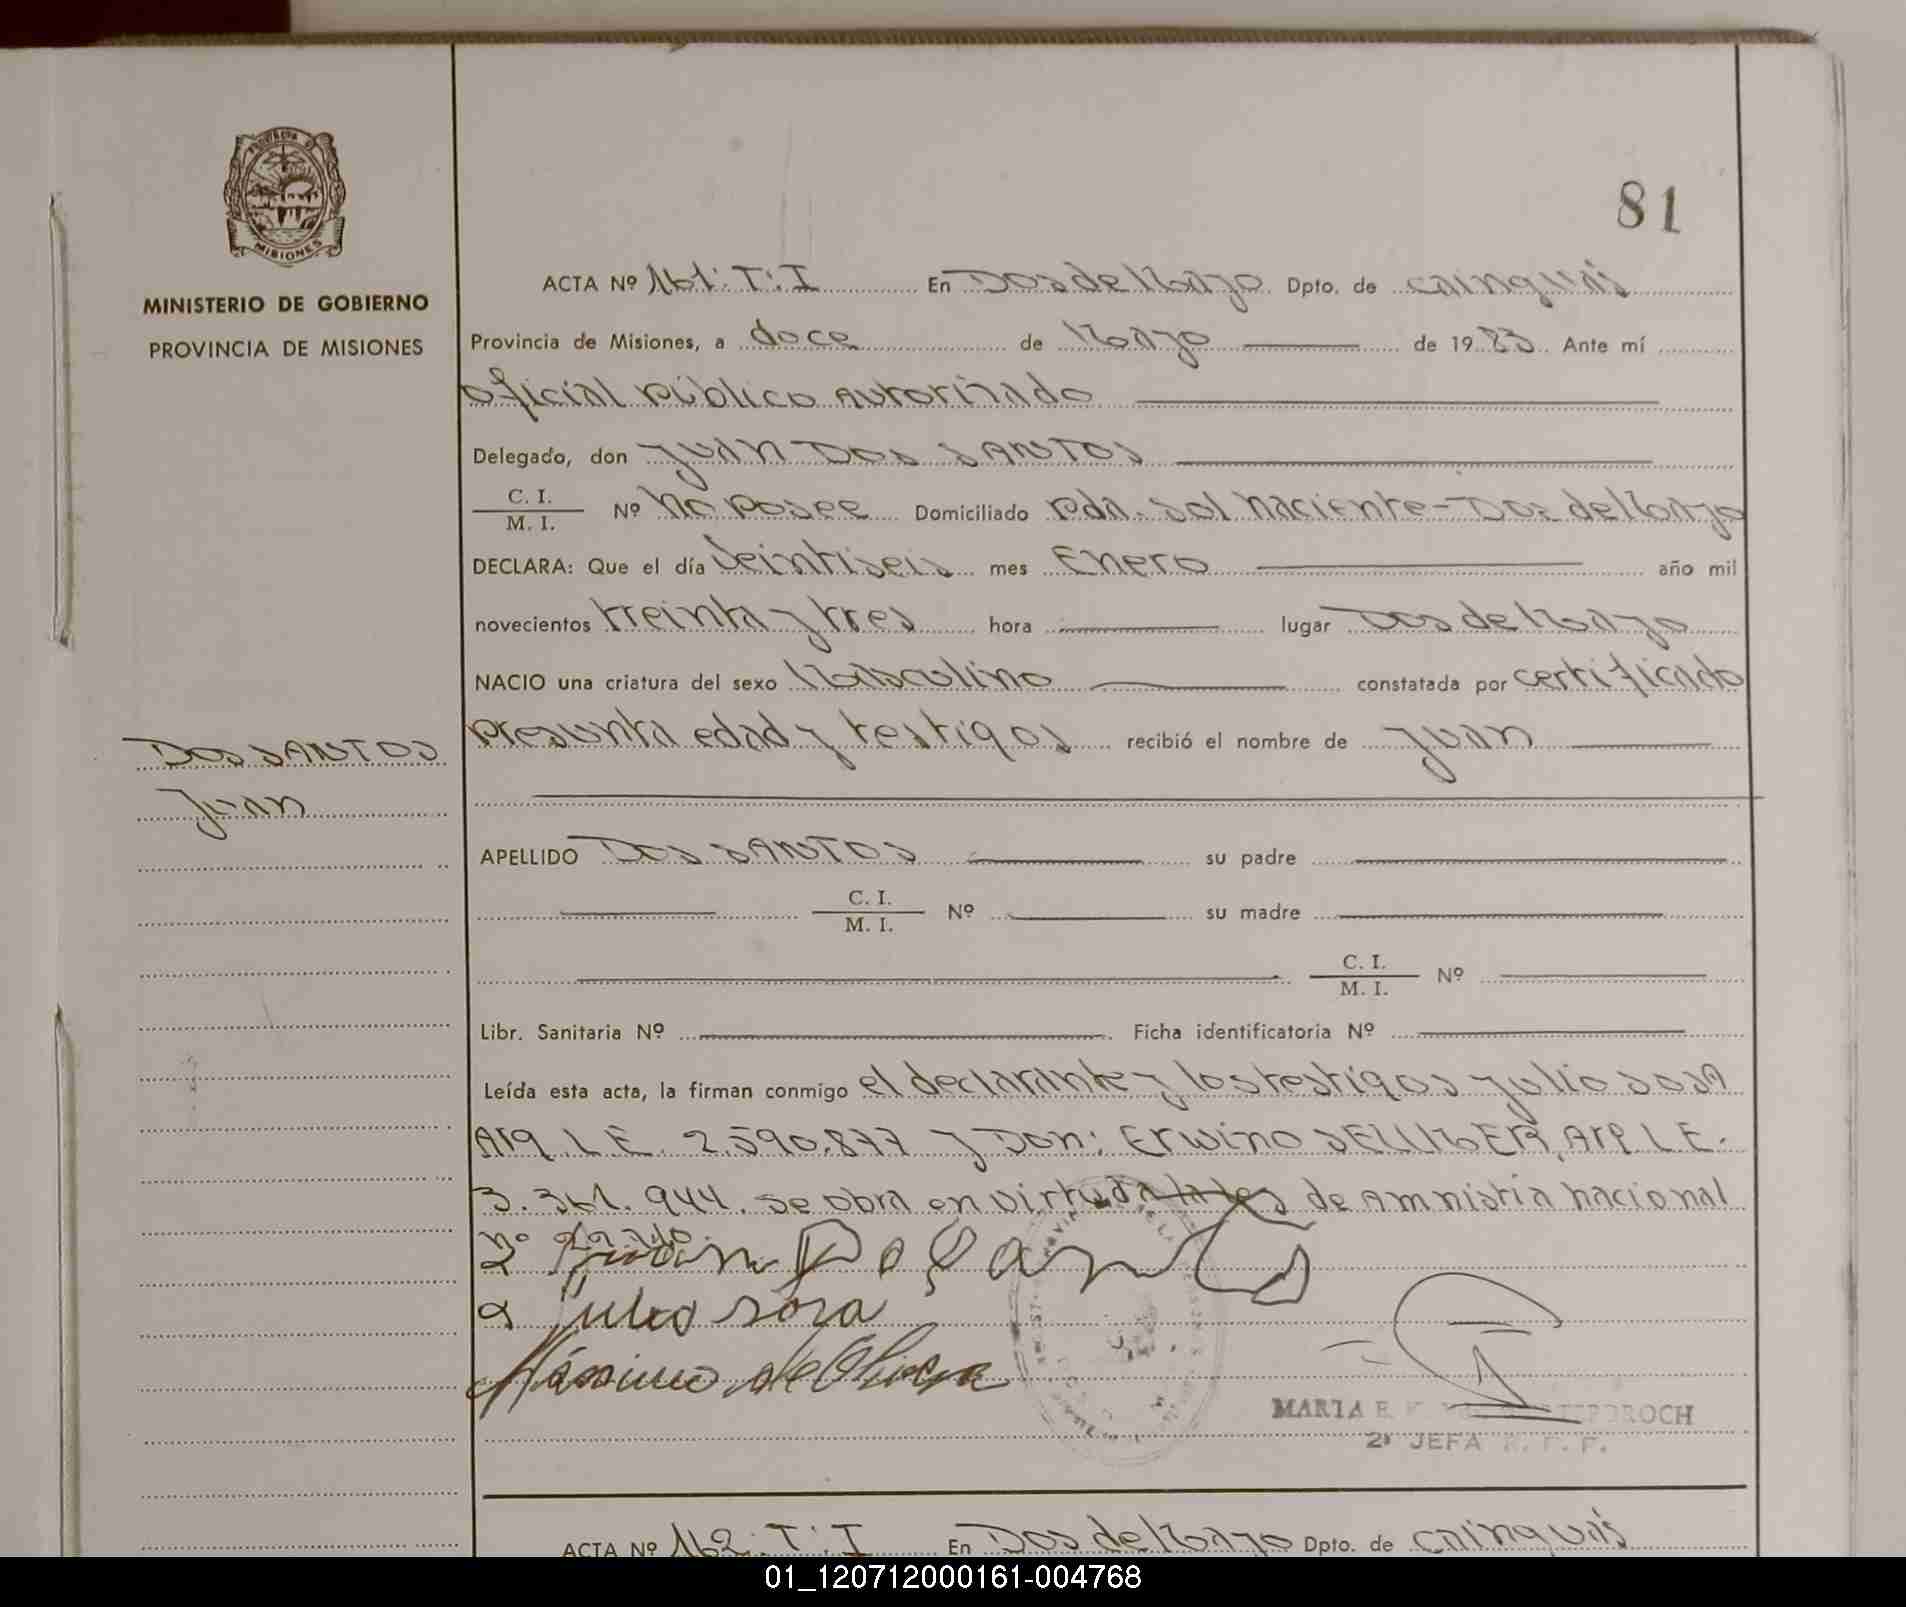 81
PROVINCIA DE
MISIONES
MINISTERIO DE GOBIERNO
PROVINCIA DE MISIONES
ACTA Nº 161: T: I En Dos de Mayo Dpto. de Cainguás
Provincia de Misiones, a doce de Mayo de 1983. Ante mí
oficial público autorizado
Delegado, don Juan DOS SANTOS
C. I.
M. I. Nº no posee Domiciliado Pda. Sol Naciente - Dos de Mayo
DECLARA: Que el día Veintiseis mes Enero año mil
novecientos treinta y tres hora lugar Dos de Mayo
NACIO una criatura del sexo Masculino constatada por certificado
presunta edad y testigos recibió el nombre de Juan
DOS SANTOS
Juan
APELLIDO DOS SANTOS su padre
C. I.
M. I. Nº su madre
C. I.
M. I. Nº
Libr. Sanitaria Nº Ficha identificatoria Nº
Leída esta acta, la firman conmigo el declarante y los testigos Julio SOSA
Arg. L.E. 2.590.877 y Don: Erwino Arg L.E.
3.361.944. se obra en virtud a la ley de Amnistia nacional
nº
Juan Do Santo
Julio sosa
Máximo de
MARIA E.
2ª JEFA R. P. P.
ACTA Nº 162: T: I En Dos de Mayo Dpto. de Cainguás
01_120712000161-004768